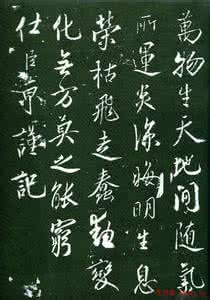 萬物生天地間随氣
所運炎涼晦明生息
榮枯飛走蠢動變
化无方莫之能窮
仕臣京謹記